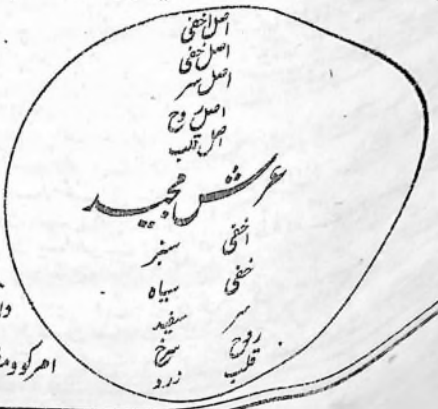 اصل اخفی
اصل خفی
اصل سر
اصل روح
اصل قلب
عرش مجید
اخفی سبز
خفی سیاہ
سر سفید
روح سرخ
قلب زرد